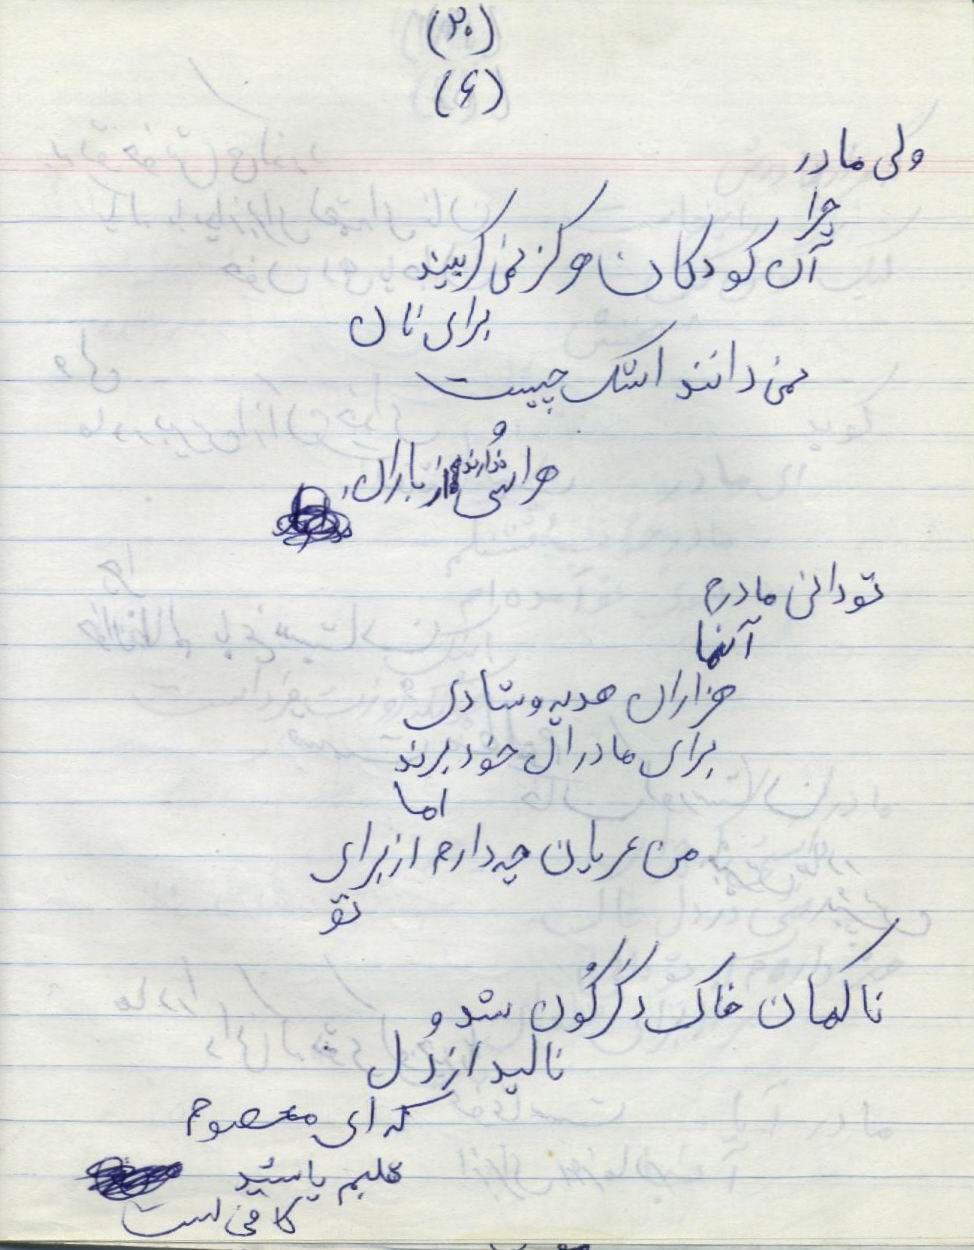 (۲۰)
(۶)
ولی مادر
چرا
آن کودکان هرگز نمی گریند
برای نان
نمی دانند اشک چیست
و
هراسی ندارند از باران،
تو دانی مادرم
آنها
هزاران هدیه و شادی
برای مادران خود برند
اما
من عریان چه دارم از برای
تو
ناگهان خاک دگرگون شد و
نالید از دل
که ای معصوم
پاشید
کافی است